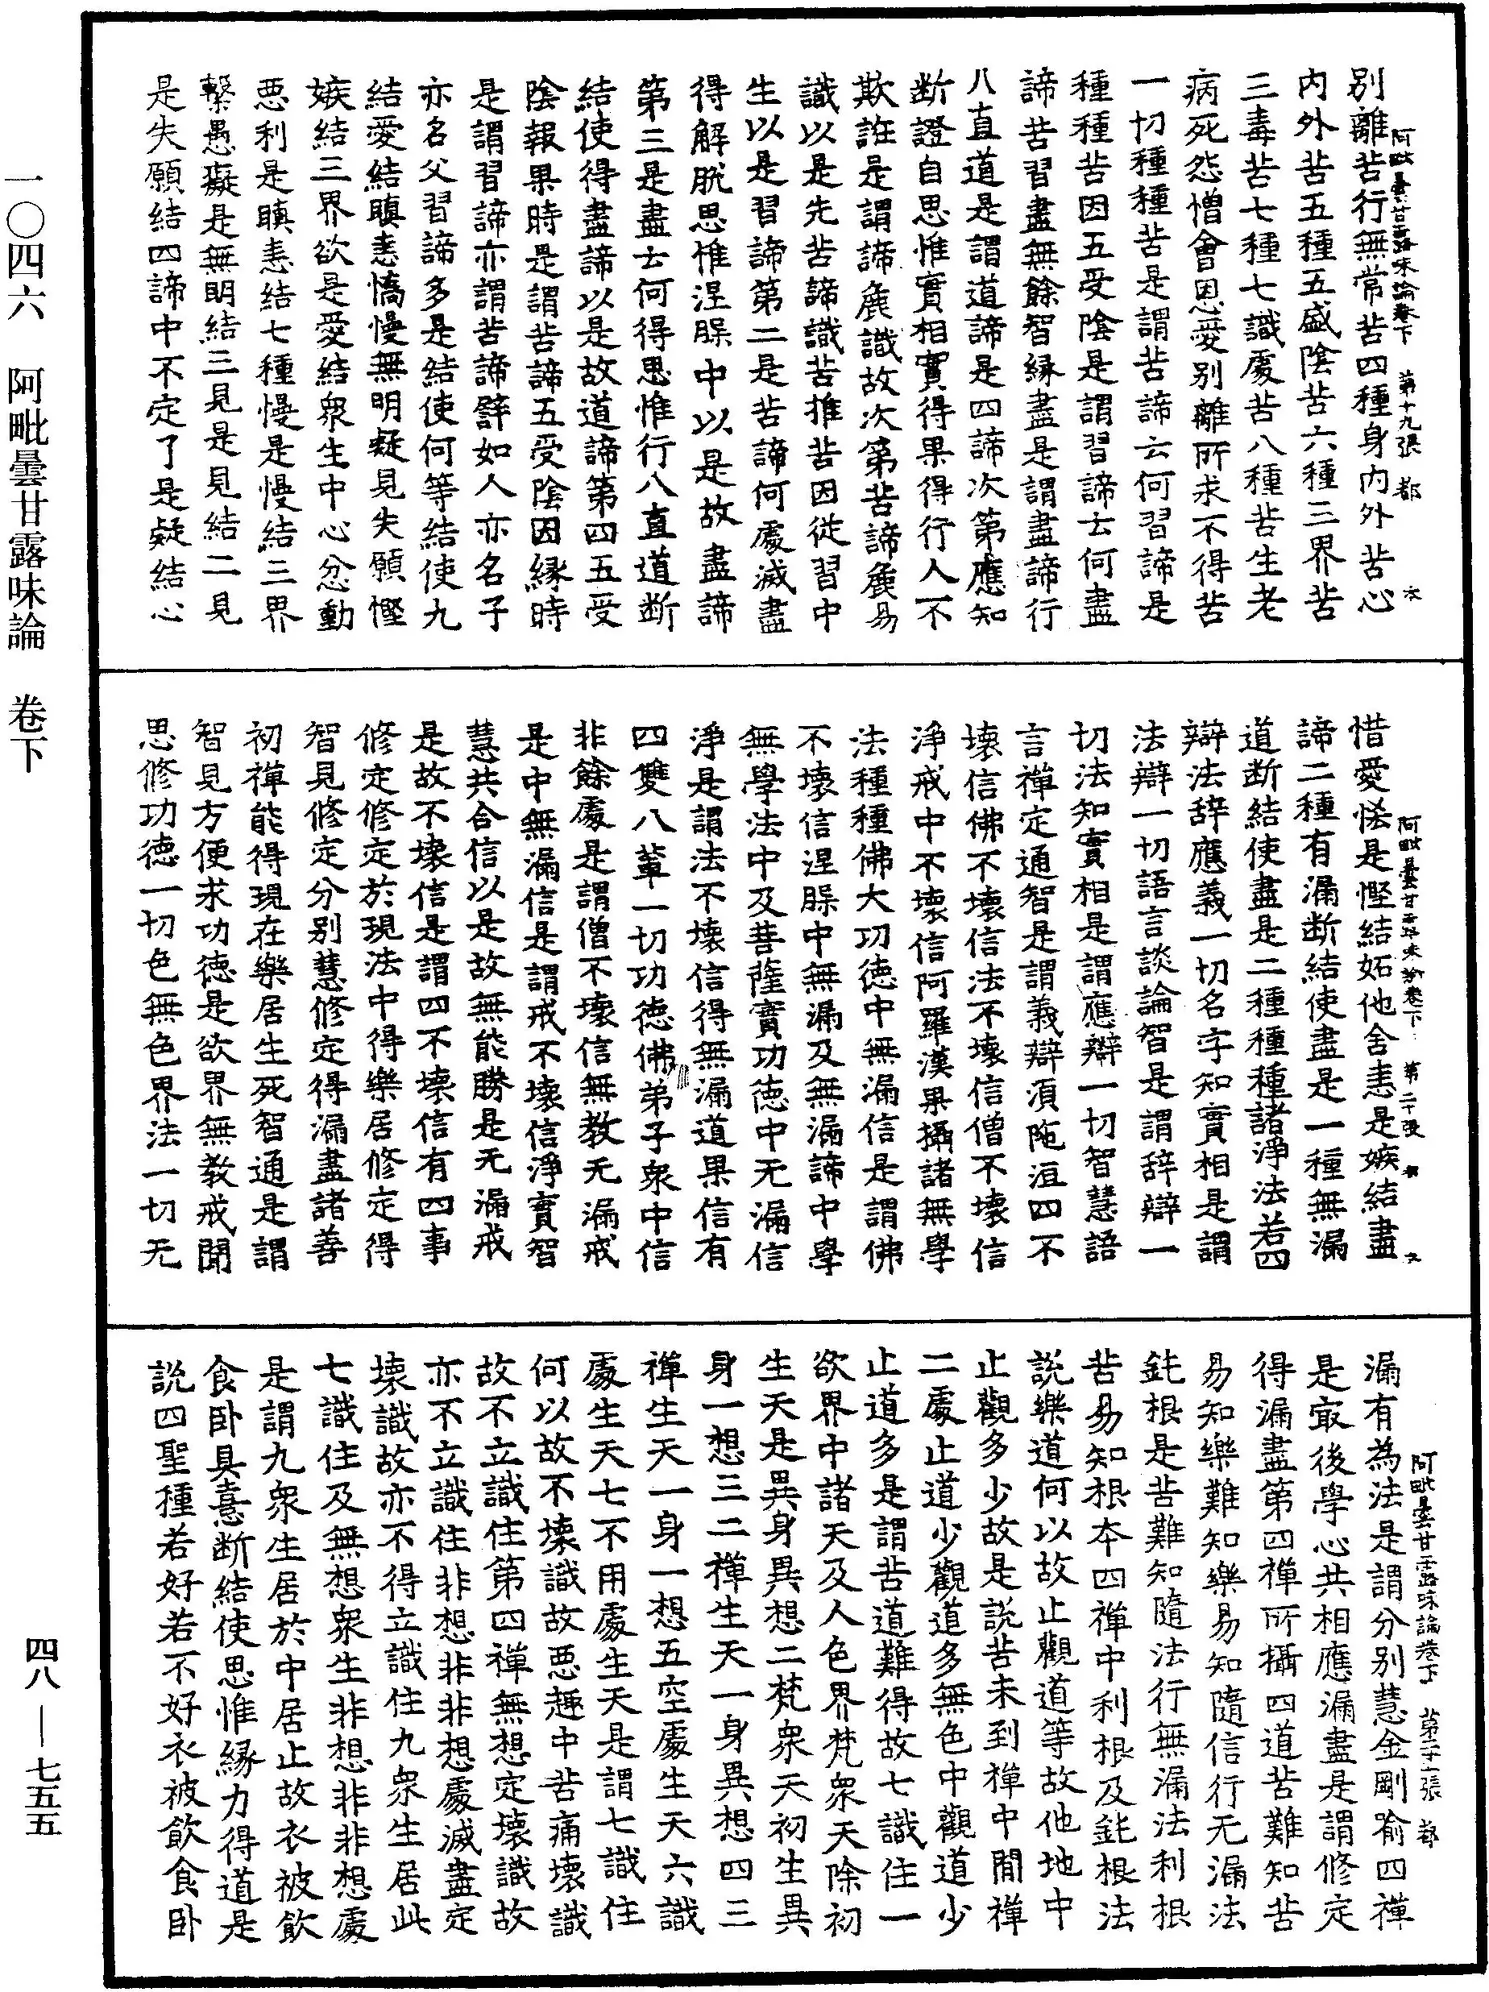 一〇四六 阿毗曇甘露味論 卷下
阿毗曇甘露味論卷下 第十九張 都
別離苦行無常苦四種身內外苦心
內外苦五種五盛陰苦六種三界苦
三毒苦七種七識處苦八種苦生老
病死怨憎會恩愛別離所求不得苦
一切種種苦是謂苦諦云何習諦是
種種苦因五受陰是謂習諦云何盡
諦苦習盡無餘智緣盡是謂盡諦行
八直道是謂道諦是四諦次第應知
断證自思惟實相實得果得行人不
欺誑是謂諦麁識故次第苦諦麁易
識以是先苦諦識苦推苦因從習中
生以是習諦第二是苦諦何處滅盡
得解脫思惟涅槃中以是故盡諦
第三是盡云何得思惟行八直道断
結使得盡諦以是故道諦第四五受
陰報果時是謂苦諦五受陰因緣時
是謂習諦亦謂苦諦譬如人亦名子
亦名父習諦多是結使何等結使九
結愛結瞋恚憍慢無明疑見失願慳
嫉結三界欲是愛結衆生中心忿動
惡利是瞋恚結七種慢是慢結三界
繫愚癡是無明結三見是見結二見
是失願結四諦中不定了是疑結心
阿毗曇甘露味論卷下 第二十張 都
惜愛悋是慳結妬他舍恚是嫉結盡
諦二種有漏断結使盡是一種無漏
道断結使盡是二種種種諸淨法若四
辯法辞應義一切名字知實相是謂
法辯一切語言談論智是謂辞辯一
切法知實相是謂應辯一切智慧語
言禪定通智是謂義辯須陁洹四不
壞信佛不壞信法不壞信僧不壞信
淨戒中不壞信阿羅漢果攝諸無學
法種種佛大功德中無漏信是謂佛
不壞信涅槃中無漏及無漏諦中學
無學法中及菩薩實功德中无漏信
淨是謂法不壞信得無漏道果信有
四雙八輩一切功德佛弟子衆中信
非餘處是謂僧不壞信無教无漏戒
是中無漏信是謂戒不壞信淨實智
慧共合信以是故無能勝是无漏戒
是故不壞信是謂四不壞信有四事
修定修定於現法中得樂居修定得
智見修定分別慧修定得漏盡諸善
初禪能得現在樂居生死智通是謂
智見方便求功德是欲界無教戒聞
思修功德一切色無色界法一切无
阿毗曇甘露味論卷下 第二十一張 都
漏有為法是謂分別慧金剛喻四禪
是㝡後學心共相應漏盡是謂修定
得漏盡第四禪所攝四道苦難知苦
易知樂難知樂易知隨信行无漏法
鈍根是苦難知隨法行無漏法利根
苦易知根本四禪中利根及鈍根法
說樂道何以故止觀道等故他地中
止觀多少故是說苦未到禪中閒禪
二處止道少觀道多無色中觀道少
止道多是謂苦道難得故七識住一
欲界中諸天及人色界梵衆天除初
生天是異身異想二梵衆天初生異
身一想三二禪生天一身異想四三
禪生天一身一想五空處生天六識
處生天七不用處生天是謂七識住
何以故不壞識故惡趣中苦痛壞識
故不立識住第四禪無想定壞識故
亦不立識住非想非非想處滅盡定
壞識故亦不得立識住九衆生居此
七識住及無想衆生非想非非想處
是謂九衆生居於中居止故衣被飲
食卧具憙断結使思惟緣力得道是
說四聖種若好若不好衣被飲食卧
四八—七五五